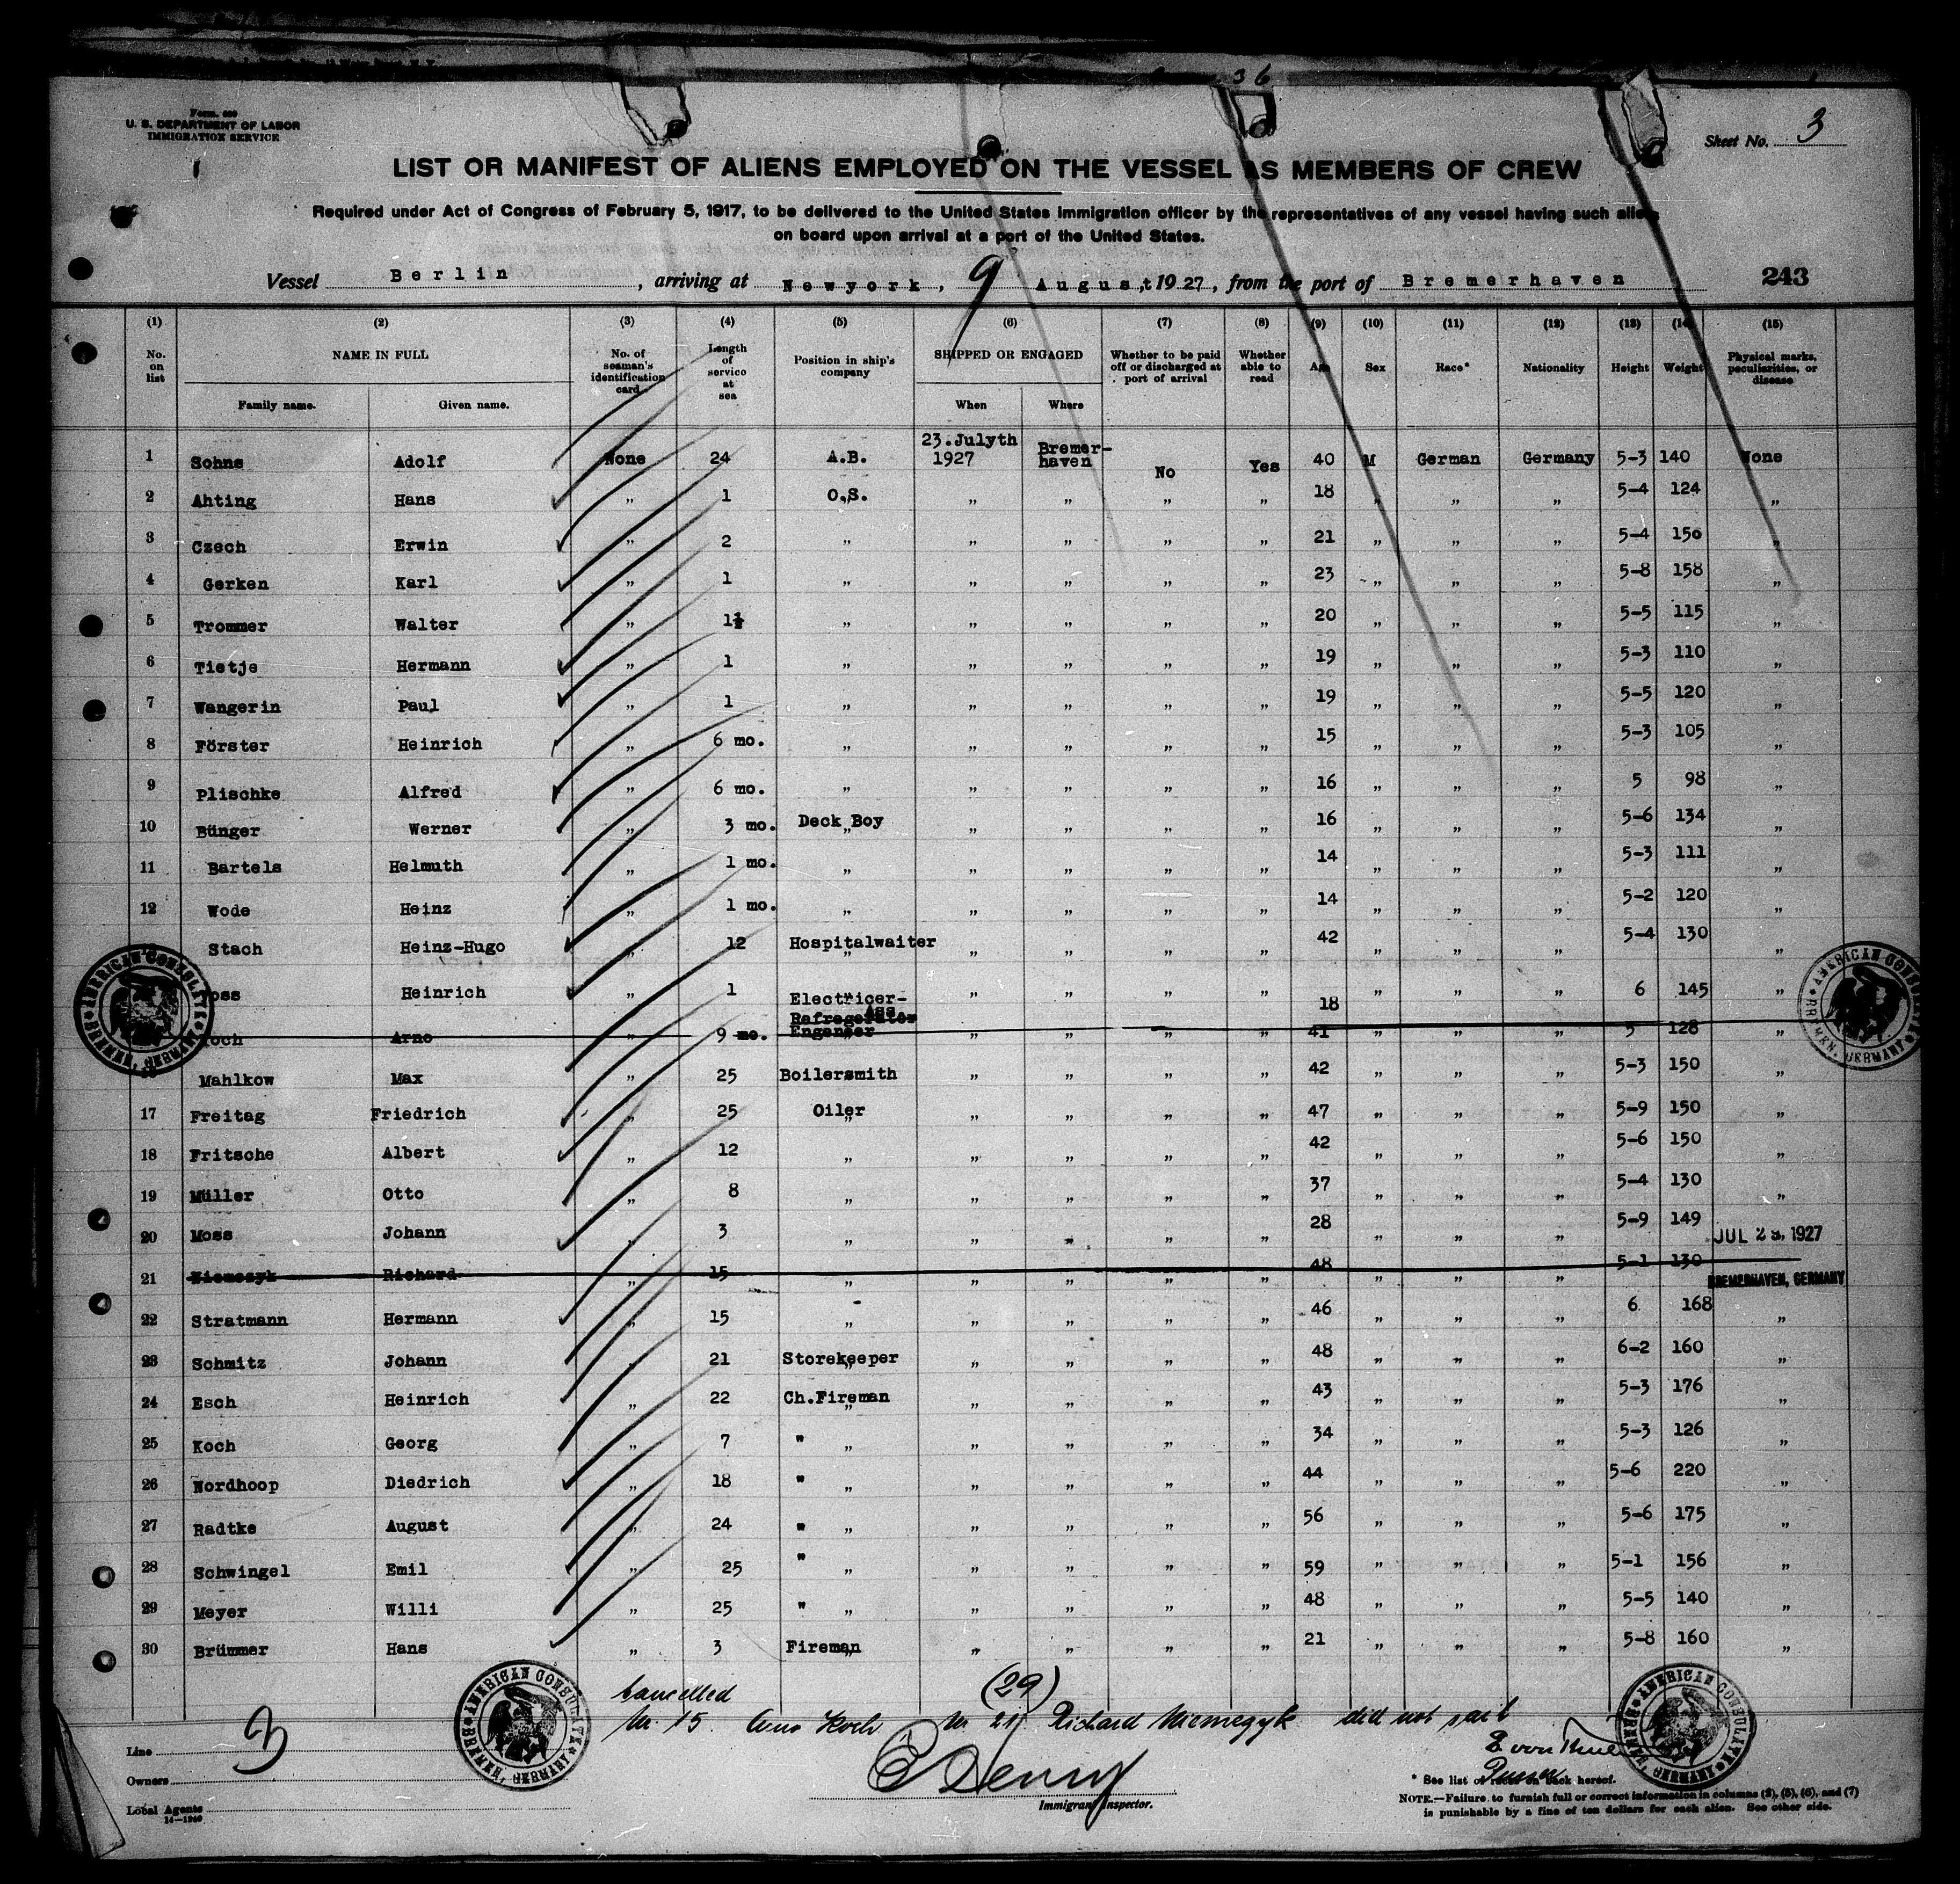 36
Form 680
U. S. DEPARTMENT OF LABOR
IMMIGRATION SERVICE
Sheet No. 3
LIST OR MANIFEST OF ALIENS EMPLOYED ON THE VESSEL AS MEMBERS OF CREW
Required under Act of Congress of February 5, 1917, to be delivered to the United States immigration officer by the representatives of any vessel having such aliens
on board upon arrival at a port of the United States.
Vessel Berlin, arriving at Newyork, 9 August, 1927, from the port of Bremerhaven 243
(1) (2) (3) (4) (5) (6) (7) (8) (9) (10) (11) (12) (13) (14) (15)
No. on list NAME IN FULL Family name. Given name. No. of seaman's identification card Length of service at sea Position in ship's company SHIPPED OR ENGAGED When Where Whether to be paid off or discharged at port of arrival Whether able to read Age Sex Race* Nationality Height Weight Physical marks, peculiarities, or disease
1 Sohns Adolf None 24 A.B. 23.Julyth 1927 Bremer-haven No Yes 40 M German Germany 5-3 140 None
2 Ahting Hans „ 1 O.S. „ „ „ „ 18 „ „ „ 5-4 124 „
3 Czech Erwin „ 2 „ „ „ „ „ 21 „ „ „ 5-4 150 „
4 Gerken Karl „ 1 „ „ „ „ „ 23 „ „ „ 5-8 158 „
5 Trommer Walter „ 1½ „ „ „ „ „ 20 „ „ „ 5-5 115 „
6 Tietje Hermann „ 1 „ „ „ „ „ 19 „ „ „ 5-3 110 „
7 Wangerin Paul „ 1 „ „ „ „ „ 19 „ „ „ 5-5 120 „
8 Förster Heinrich „ 6 mo. „ „ „ „ „ 15 „ „ „ 5-3 105 „
9 Plischke Alfred „ 6 mo. „ „ „ „ „ 16 „ „ „ 5 98 „
10 Bünger Werner „ 3 mo. Deck Boy „ „ „ „ 16 „ „ „ 5-6 134 „
11 Bartels Helmuth „ 1 mo. „ „ „ „ „ 14 „ „ „ 5-3 111 „
12 Wode Heinz „ 1 mo. „ „ „ „ „ 14 „ „ „ 5-2 120 „
Stach Heinz-Hugo „ 12 Hospitalwaiter „ „ „ „ 42 „ „ „ 5-4 130 „
Heinrich „ 1 Electricer-Ass „ „ „ „ 18 „ „ „ 6 145 „
Koch Arno „ 9 mo. Refregerator Engeneer „ „ „ „ 41 „ „ „ 5 128 „
Mahlkow Max „ 25 Boilersmith „ „ „ „ 42 „ „ „ 5-3 150 „
17 Freitag Friedrich „ 25 Oiler „ „ „ „ 47 „ „ „ 5-9 150 „
18 Fritsche Albert „ 12 „ „ „ „ „ 42 „ „ „ 5-6 150 „
19 Müller Otto „ 8 „ „ „ „ „ 37 „ „ „ 5-4 130 „
20 Moss Johann „ 3 „ „ „ „ „ 28 „ „ „ 5-9 149
JUL 2 1927
21 Niemczyk Richard „ 15 „ „ „ „ „ 48 „ „ „ 5-1 130
BREMERHAVEN, GERMANY
22 Stratmann Hermann „ 15 „ „ „ „ „ 46 „ „ „ 6 168 „
23 Schmitz Johann „ 21 Storekeeper „ „ „ „ 48 „ „ „ 6-2 160 „
24 Esch Heinrich „ 22 Ch.Fireman „ „ „ „ 43 „ „ „ 5-3 176 „
25 Koch Georg „ 7 " „ „ „ „ „ 34 „ „ „ 5-3 126 „
26 Nordhoop Diedrich „ 18 " „ „ „ „ „ 44 „ „ „ 5-6 220 „
27 Radtke August „ 24 " „ „ „ „ „ 56 „ „ „ 5-6 175 „
28 Schwingel Emil „ 25 " „ „ „ „ „ 59 „ „ „ 5-1 156 „
29 Meyer Willi „ 25 " „ „ „ „ „ 48 „ „ „ 5-5 140 „
30 Brümmer Hans „ 3 Fireman „ „ „ „ 21 „ „ „ 5-8 160 „
AMERICAN CONSULATE BREMEN, GERMANY
AMERICAN CONSULATE BREMEN, GERMANY
cancelled (29)
Nr. 15 Arno Koch Nr 21 Richard Niemczyk did not sail
AMERICAN CONSULATE BREMEN, GERMANY
AMERICAN CONSULATE BREMEN, GERMANY
3
Line
Owners
Local Agents
14—1240
Immigrant Inspector.
Purser
* See list of races on back hereof.
NOTE.—Failure to furnish full or correct information in columns (2), (5), (6), and (7)
is punishable by a fine of ten dollars for each alien. See other side.